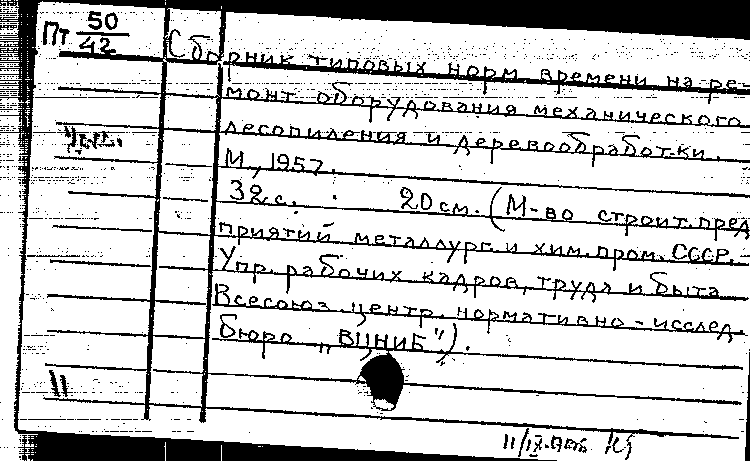 Пт 50/42
Сборник типовых норм времени на ре-
монт оборудования механического
лесопиления и деревообработки.
М., 1957.
32 с. 20 см. (М-во строит. пред
приятий металлург. и хим. пром. СССР. -
Упр. рабочих кадров, труда и быта
Всесоюз. центр. нормативно-исслед.
бюро „ВЦНИБ").
11